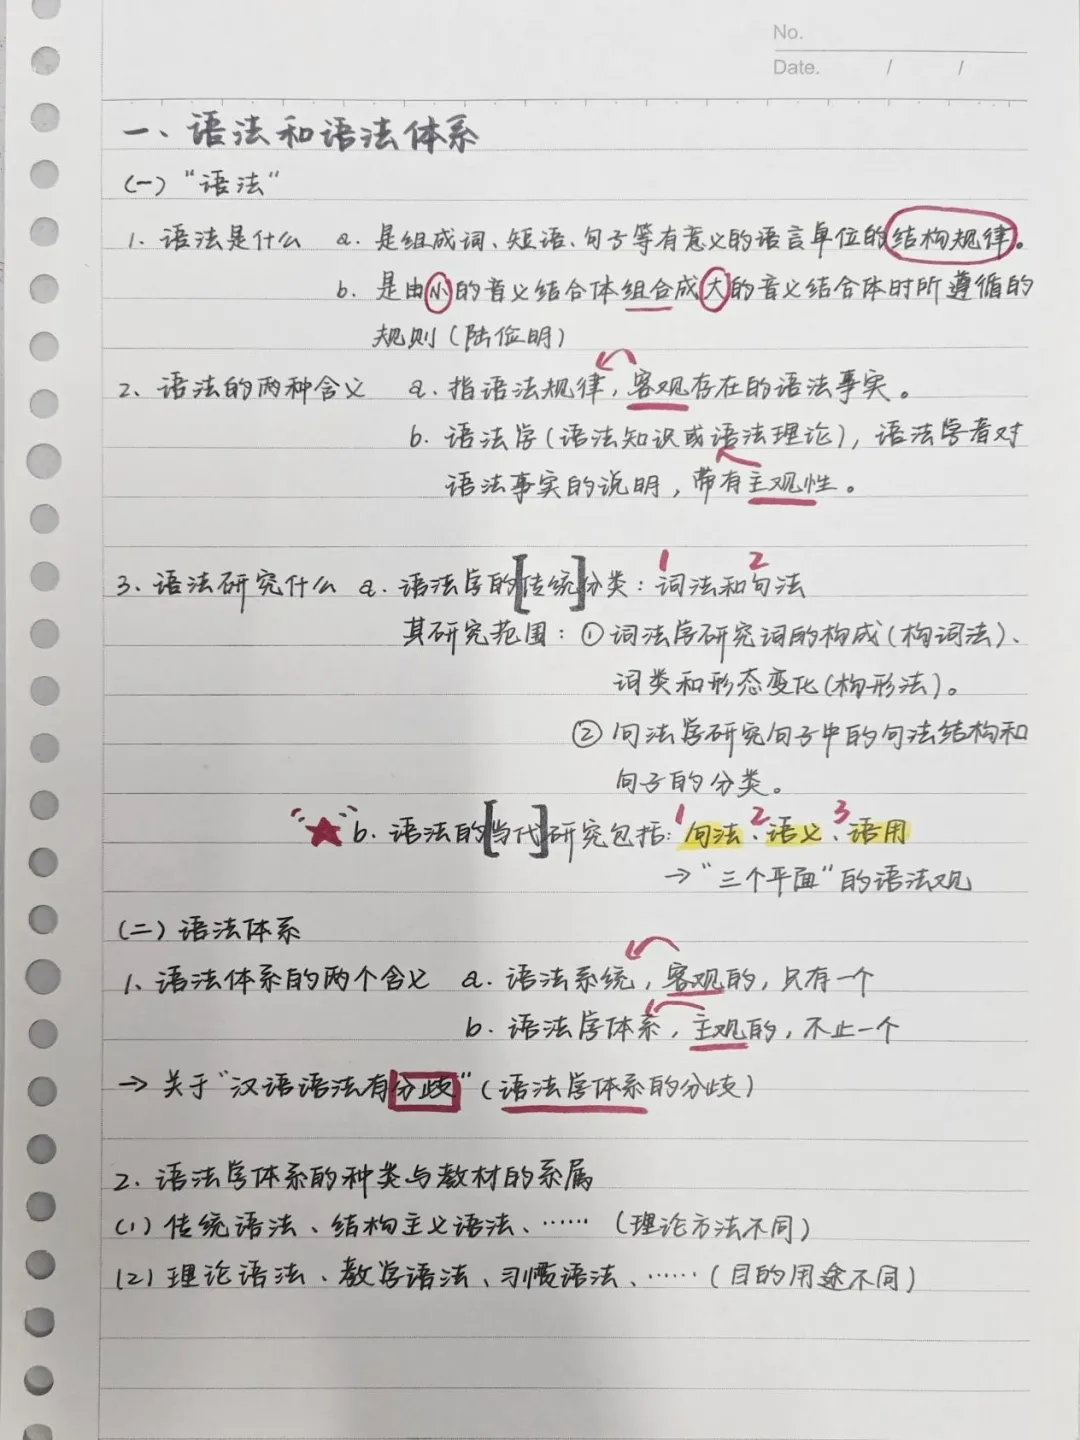 No.
Date. / /
一、语法和语法体系
(一) “语法”
1. 语法是什么 a. 是组成词、短语、句子等有意义的语言单位的结构规律。
b. 是由小的音义结合体组合成大的音义结合体时所遵循的
规则(陆俭明)
2、语法的两种含义 a. 指语法规律,客观存在的语法事实。
b. 语法学(语法知识或语法理论),语法学者对
语法事实的说明,带有主观性。
1 2
3. 语法研究什么 a. 语法学的[传统]分类:词法和句法
其研究范围:① 词法学研究词的构成(构词法)、
词类和形态变化(构形法)。
② 句法学研究句子中的句法结构和
句子的分类。
1 2 3
“★” b. 语法的[当代]研究包括:句法、语义、语用
→“三个平面”的语法观
(二) 语法体系
1、语法体系的两个含义 a. 语法系统,客观的,只有一个
b. 语法学体系,主观的,不止一个
→ 关于“汉语语法有分歧”(语法学体系的分歧)
2. 语法学体系的种类与教材的系属
(1) 传统语法、结构主义语法、…… (理论方法不同)
(2) 理论语法、教学语法、习惯语法、……(目的用途不同)